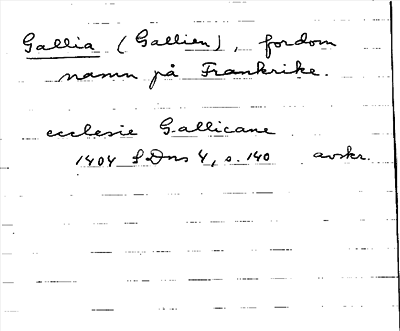 Gallia (Gallien), fordom
namn på Frankrike.
ecclesie Gallicane
1404 SDns 4, s. 140 avskr.